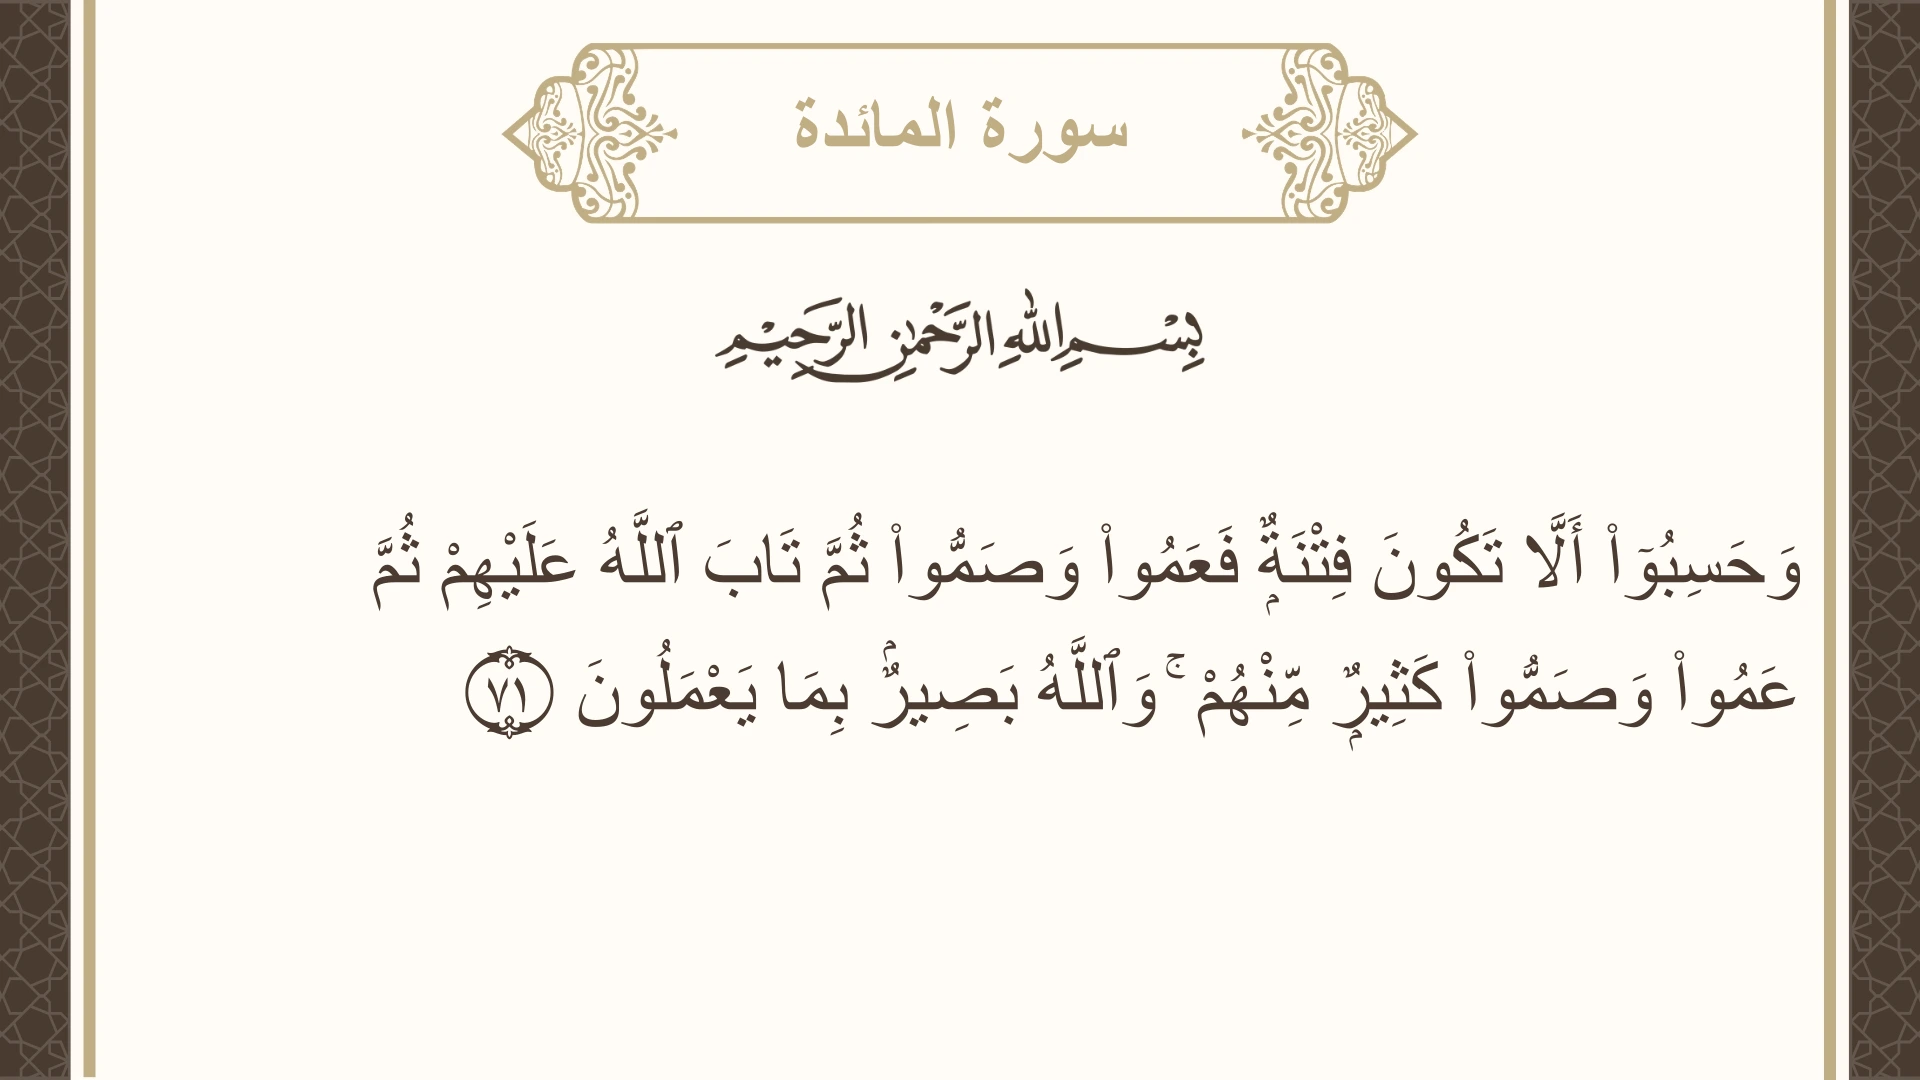 سورة المائدة
بِسْمِ اللهِ الرَّحْمٰنِ الرَّحِيْمِ
وَحَسِبُوٓا۟ أَلَّا تَكُونَ فِتْنَةٌۭ فَعَمُوا۟ وَصَمُّوا۟ ثُمَّ تَابَ ٱللَّهُ عَلَيْهِمْ ثُمَّ
عَمُوا۟ وَصَمُّوا۟ كَثِيرٌۭ مِّنْهُمْ ۚ وَٱللَّهُ بَصِيرٌۢ بِمَا يَعْمَلُونَ ٧١